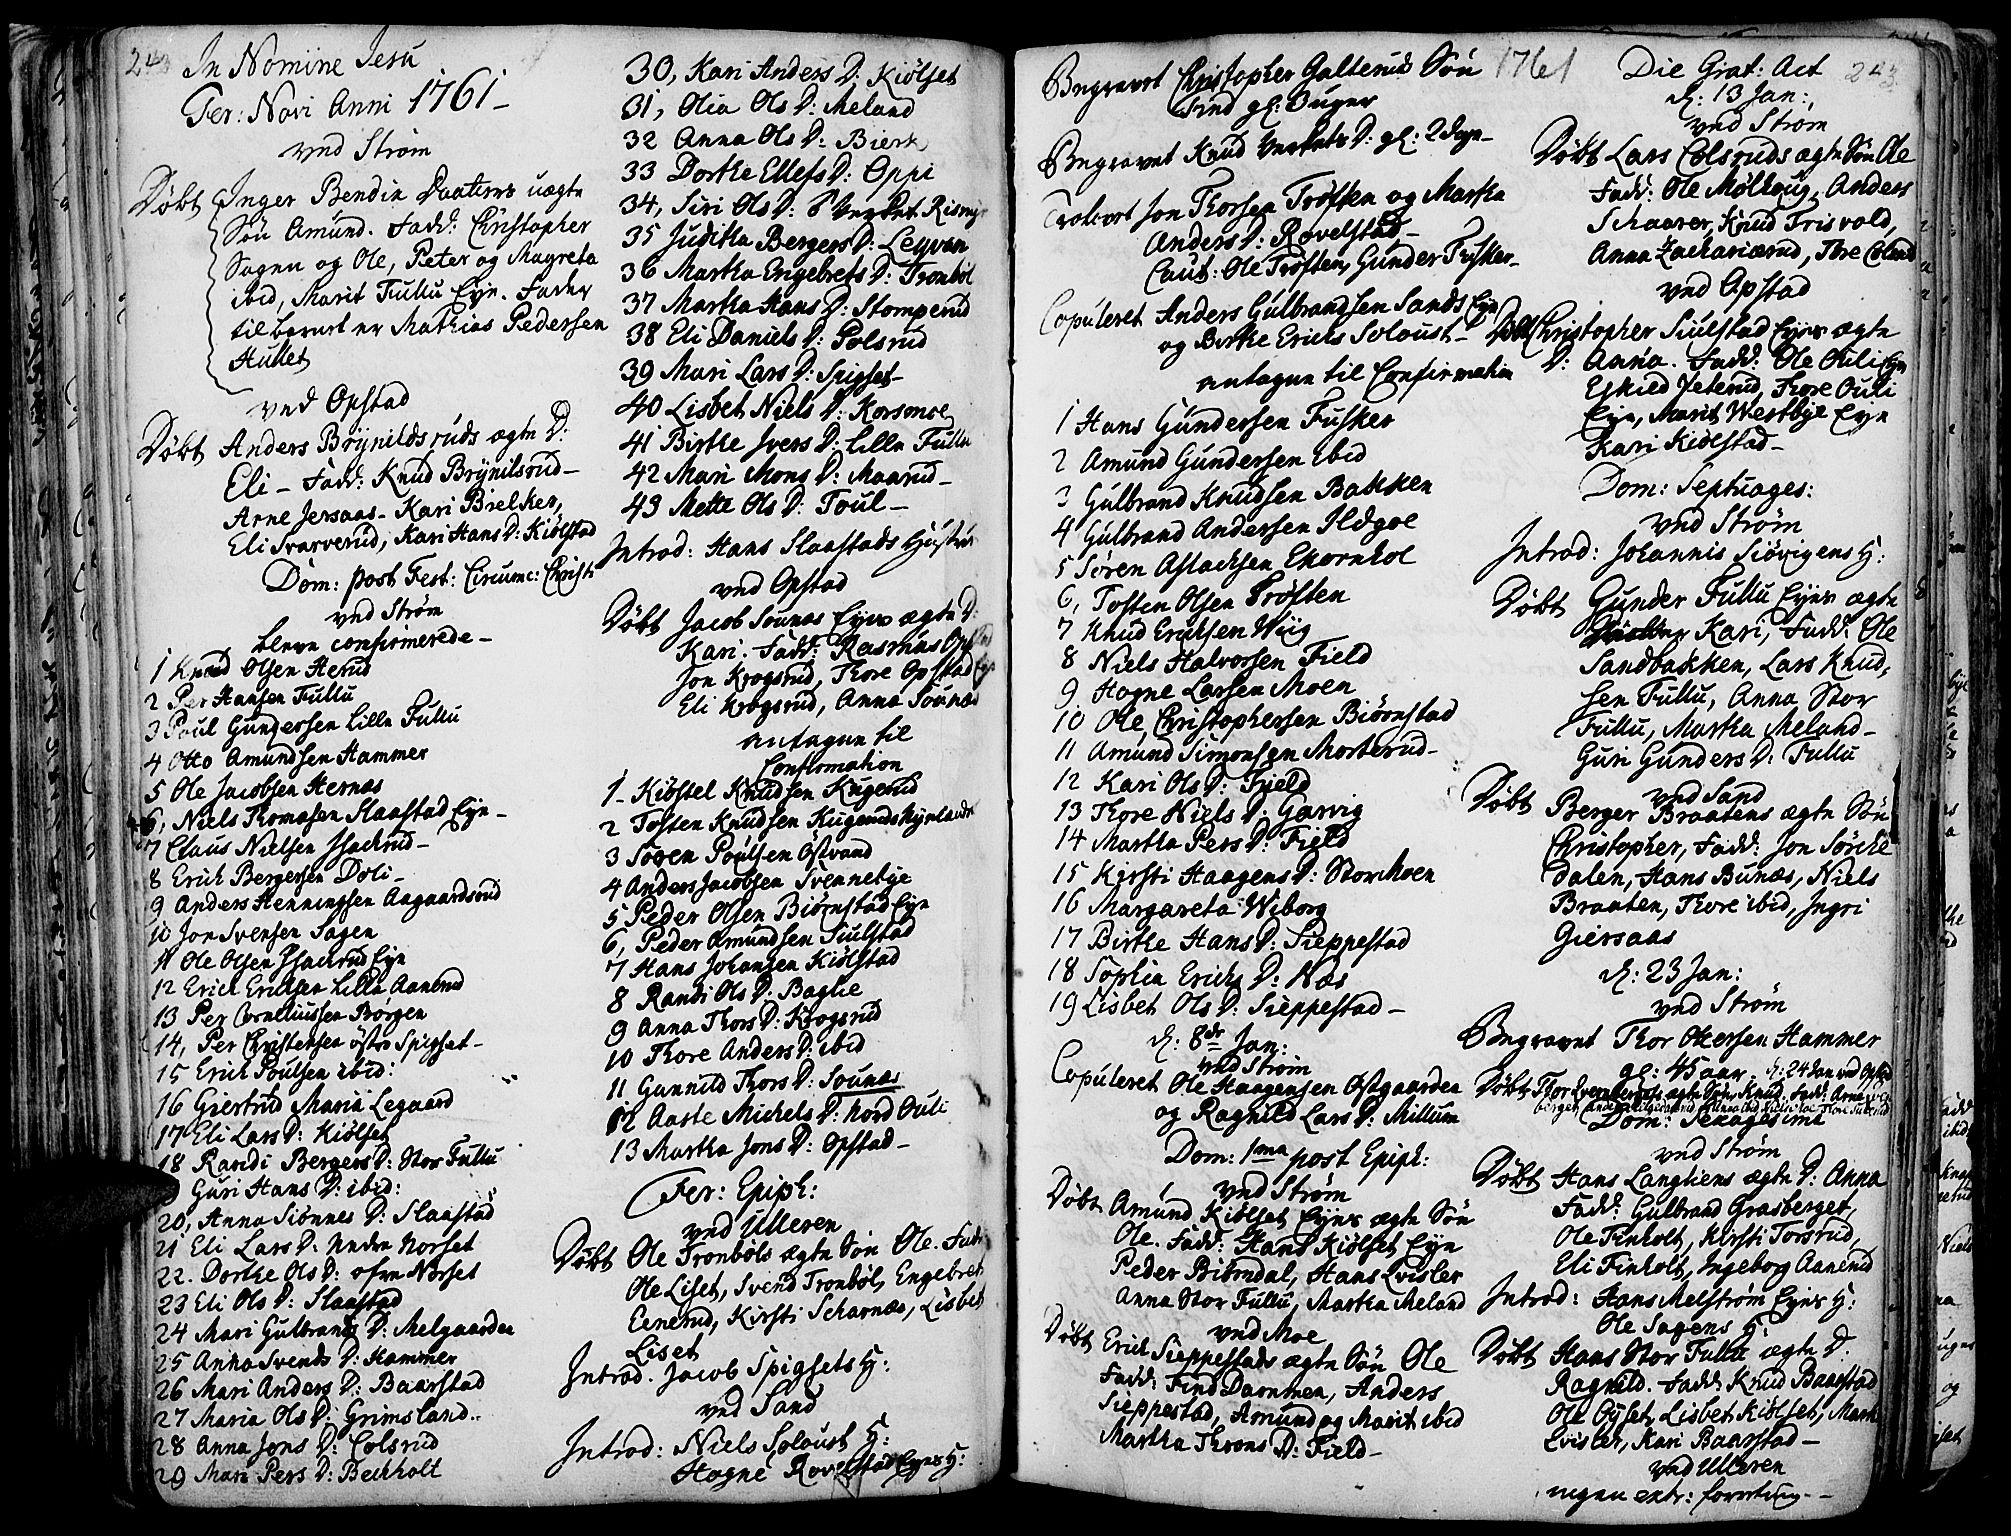 242
In Nomine Jesu
Fer: Novi Anni 1761 -
ved Strøm
Døbt Inger Bendix Daatters uægte
Søn Amund. Fadd: Christopher
Sagen og Ole, Peter og Magreta
ibid, Marit Fullu Eyn. Fader
til barnet er Mathias Pedersen
Hullet
ved Opstad
Døbt Anders Brÿnildsruds ægte D:
Eli - Fadd: Knud Brÿnilsrud -
Arne Jersaas - Kari Bielker,
Eli Svarverud, Kari Hans D: Kiølstad
Dom: post Fest: Circumc: Christi
ved Strøm
bleve confirmerede -
1 Knud Olsen Herud
2 Per Hansen Fullu
3 Poul Gundersen Lille Fullu
4 Otto Amundsen Hammer
5 Ole Jacobsen Hernæs
6, Niels Thomasen Slaastad Eyn -
7 Claus Nielsen Isachrud -
8 Erich Bergersen Doli -
9 Anders Henningsen Aagaardsrud
10 Jon Svensen Sagen
11 Ole Olsen Isachrud Eyn
12 Erich Erichsen Lille Aanerud
13 Per Corneliussen Børgen
14, Per Christensen østre Spigset -
15 Erich Poulsen ibid:
16 Giertrud Maria Legaard
17 Eli Lars D: Kiølset
18 Randi Bergers D: Stor Fullu
Guri Hans D: ibid:
20, Anna Siønnes D: Slaastad
21 Eli Lars D: Nedre Norset
22. Dorthe Ols D: øfre Norset
23 Eli Ols D: Slaastad
24 Mari Gulbrands D: Melgaarden
25 Anna Svends D: Hammer
26 Mari Anders D: Baarstad
27 Maria Ols D: Grimsland..
28 Anna Jons D: Colsrud
29 Mari Pers D: Bechholt
30, Kari Anders D: Kiølset
31, Olia Ols D: Meland
32 Anna Ols D: Bierk
33 Dorthe Ellefs D: Oppi
34, Siri Ols D: Rismyr
35 Juditha Bergers D: Leyren
36 Martha Engebrets D: Tronbøl
37 Martha Hans D: Stomperud
38 Eli Daniels D: Polsrud
39 Mari Lars D: Spigset -
40 Lisbet Niels D: Korsmoe
41 Birthe Ivers D: Lille Fullu
42 Mari Mons D: Maarud -
43 Mette Ols D: Foul -
Introd: Hans Slaastads Hustru
ved Opstad
Døbt Jacob Sounæs Eyes ægte D:
Kari. Fadd: Rasmus
Jon Krogsrud, Thore Opstad
Eli Krogsrud, Anna Sounæs
antagne til
Confirmation
1 - Kiøstel Knudsen Kugerud
2 Tosten Knudsen
3 Søren Poulsen Østvand
4 Anders Jacobsen Svennebye
5 Peder Olsen Biørnstad Eyn
6, Peder Amundsen Siulstad
7 Hans Johansen Kiølstad
8 Randi Ols D: Baghe
9 Anna Thors D: Krogsrud
10 Thore Anders D: ibid
11 Gunnild Thors D: Sounæs
12 Aaste Michels D: Nord Ouli
13 Martha Jons D: Opstad -
Fer: Epiph:
ved Ulleren
Døbt Ole Tronbøls ægte Søn Ole. Fadd
Ole Liset, Svend Tronbøl, Engebret
Eenerud, Kirsti Scharnæs, Lisbet
Liset
Introd. Jacob Spigsets H:
ved Sand
Introd: Niels Soloust H:
Hogne Rovelstad Eyes H:
Begravet Christopher Galteruds Søn
Find gl: Duger
Begravet Knud Verkets D: gl: 2 dage -
Trolovet Jon Thorsen Trøften og Martha
Anders D: Rovelstad -
Caut: Ole Trøften, Gunder Fusker -
Copuleret Anders Gulbrandsen Sands Eyn
og Birthe Erichs Soloust -
antagne til Confirmation
1 Hans Gundersen Fusker
2 Amund Gundersen Ibid
3 Gulbrand Knudsen Bakken
4 Gulbrand Andersen Ildgoe
5 Søren Aslachsen Ekornhol
6, Tosten Olsen Trøften
7 Knud Erichsen Wiig
8 Niels Halvorsen Field
9 Hogne Larsen Moen
10 Ole Christophersen Biørnstad
11 Amund Simonsen Morterud -
12 Kari Ols D: Field
13 Thore Niels D: Garvig
14 Martha Pers D: Field
15 Kirsti Haagens D: Storehoen
16 Margareta Wiborg
17 Birthe Hans D: Sieppestad
18 Sophia Erichs D: Næs
19 Lisbet Ols D: Sieppestad -
d: 8de Jan:
ved Strøm
Copuleret Ole Haagensen Østgaarden
og Ragnild Lars D: Millum
Dom: 1ma post Epiph:
ved Strøm
Døbt Amund Kiølset Eyes ægte Søn
Ole. Fadd: Hans Kiølset Eyn
Peder Biørndal, Hans Qvisler
Anna Stor Fullu, Martha Meland
ved Moe
Døbt Erich Sieppestads ægte Søn Ole
Fadd: Find Dammen, Anders
Sieppestad, Amund og Marit ibid
Martha Throns D: Field -
1761
Die Grat: Act 243
d: 13 Jan:,
ved Strøm
Døbt Lars Colsruds ægte Søn Ole
Fadd: Ole Mølleug, Anders
Schaarer, Knud Trisvold,
Anna Zachariærud, Thore Colsrud
ved Opstad
Døbt Christopher Siulstad Eyes ægte
D: Anna. Fadd: Ole Ouli Eyn
Eskied Jeterud, Thore Ouli
Eyn, Marit Westbye Eyn
Kari Kidlstad -
Dom: Septuages:
ved Strøm
Introd: Johannis Siøvigens H:
Døbt Gunder Fullu Eyes ægte
Kari, Fadd: Ole
Sandbakken, Lars Knud,
sen Fullu, Anna Stor
Fullu, Martha Meland -
Guri Gunders D: Fullu
ved Sand
Døbt Berger Braatens ægte Søn
Christopher, Fadd: Jon Sørche
dalen, Hans Bunæs, Niels
Braaten, Thore ibid, Ingri
Giersaas
d: 23 Jan:
ved Strøm
Begravet Thor Olsersen Hammer
gl: 45 aar. d: 24 Jan ved Opstad
Døbt Thor ægte Søn Knud. Fadd: Arne
Dom: Sexagesima
ved Strøm
Døbt Hans Langliens ægte D: Anna
Fadd: Gulbrand Grasberget,
Ole Finholt, Kirsti Torsrud,
Eli Finholt, Ingeborg Aanerud
Introd: Hans Melstrøm Eyes H:
Ole Sagens H:
Døbt Hans Stor Fullu ægte D.
Ragnild. Fadd: Knud Baarstad
Ole Oÿset, Lisbet Kiølset, Marte
Qvisler, Kari Baarstad -
ved Ulleren
ingen extr: forretning -